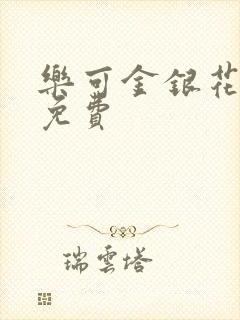 樂可金銀花
免費
瑞雲塔